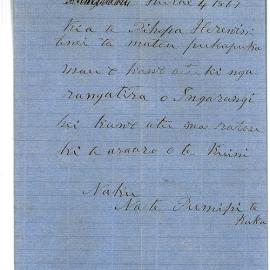 Hurae 4 1867
Kia te Pihopa Herewini
tenei ta matou pukapuka
mau e kawe atu ki nga
rangatira o Ingarangi
hei kawe atu ma ratou
ki te aroaro o te Kuini
Naku
Na te